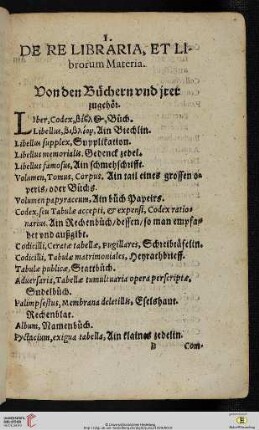 I.
DE RE LIBRARIA, ET LI-
brorum Materia.
Von den Büchern vnd jrer
zugehör.
Liber, Codex, βίβλος, Büch.
Libellus, βιβλίον, Ain Biechlin.
Libellus supplex, Supplikation.
Libellus memorialis, Gedenck zedel.
Libellus famosus, Ain schmehschrifft.
Volumen, Tomus, Corpus, Ain tail eines grossen o-
peris, oder Büchs.
Volumen papyraceum, Ain büch Papeirs.
Codex, seu Tabulæ accepti, & expensi, Codex ratio-
narius. Ain Rechenbüch/dessen/so man empfa-
het vnd außgibt.
Codicilli, Ceratæ tabellæ, pugillares, Schreibtäfelin.
Codicilli, Tabulæ matrimoniales, Heyrathbrieff.
Tabulæ publicæ, Stattbüch.
Aduersaria, Tabellæ tumultuaria opera perscriptæ,
Sudelbüch.
Palimpsestus, Membrana deletilis, Eselshaut.
Rechenblat.
Album, Namenbüch.
Pyctacium, exigua tabella, Ain klaines zedelin.
B Com-